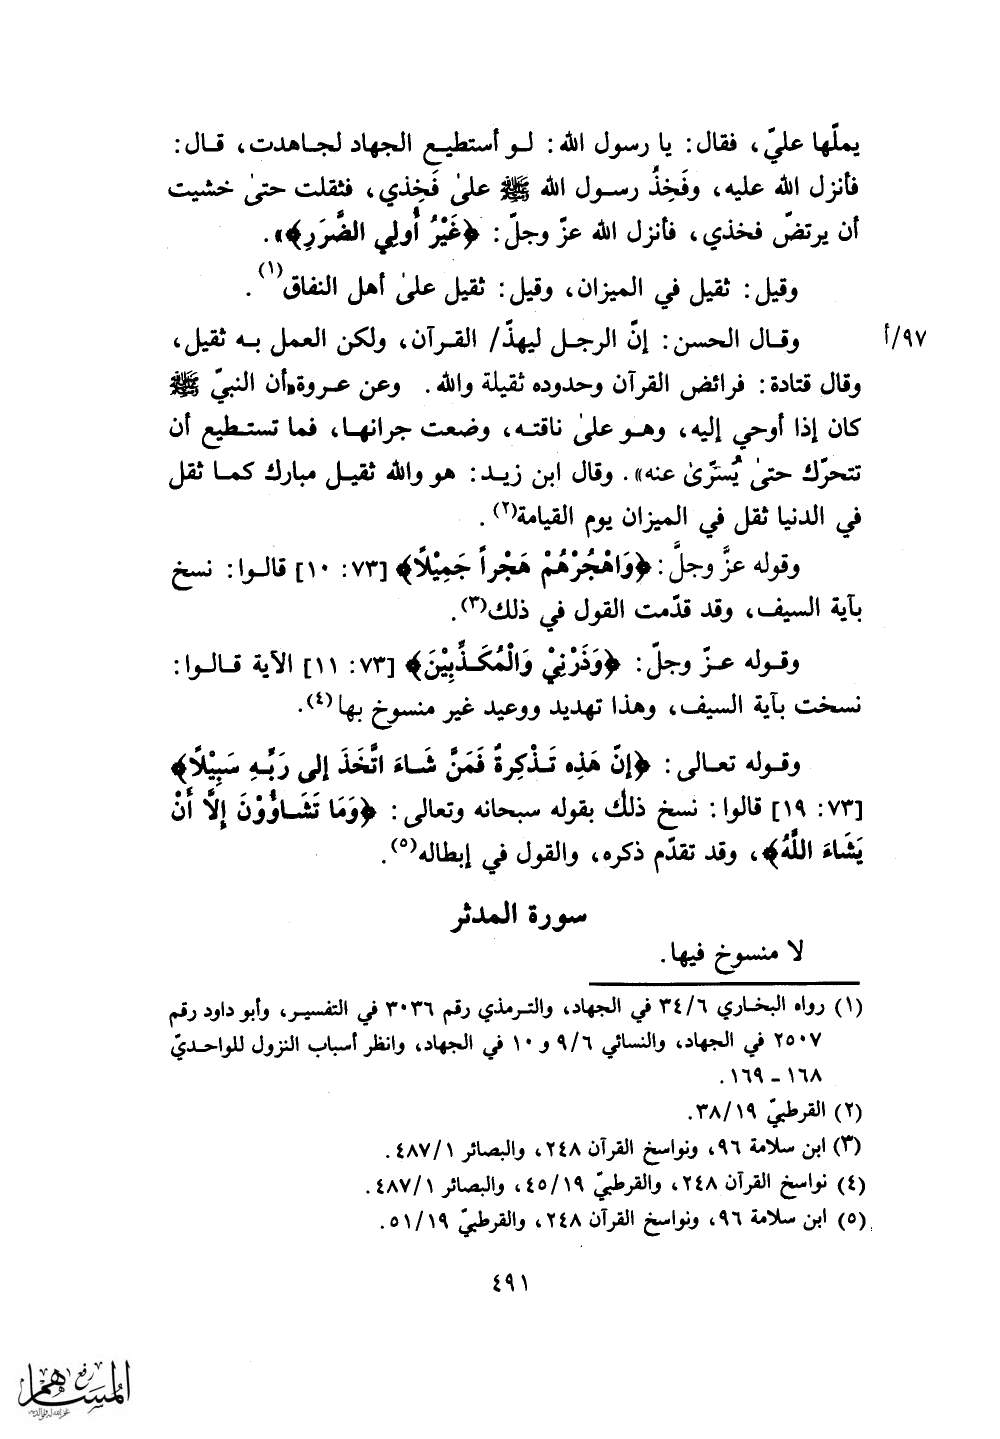 يملّها عليّ، فقال: يا رسول الله: لـو أستطيـع الجهاد لجـاهدت، قـال:
فأنزل الله عليه، وفَخِذُ رسـول الله ﷺ علىٰ فَخِذي، فثقلت حتىٰ خشيت
أن يرتضّ فخذي، فأنزل الله عزّ وجلّ: ﴿غَيْرُ أُولِي الضَّرَرِ﴾».
وقيل: ثقيل في الميزان، وقيل: ثقيل علىٰ أهل النفاق(١).
٩٧/أ وقـال الحسن: إنّ الرجـل ليهذّ/ القـرآن، ولكن العمل بـه ثقيل،
وقال قتادة: فرائض القرآن وحدوده ثقيلة والله. وعن عـروة «أن النبيّ ﷺ
كان إذا أوحي إليه، وهـو علىٰ ناقتـه، وضعت جرانهـا، فما تستـطيع أن
تتحرّك حتىٰ يُسرّىٰ عنه». وقال ابن زيـد: هو والله ثقيـل مبارك كمـا ثقل
في الدنيا ثقل في الميزان يوم القيامة(٢).
وقوله عزَّ وجلَّ: ﴿وَاهْجُرْهُمْ هَجْراً جَمِيْلًا﴾ [٧٣: ١٠] قالـوا: نسخ
بآية السيف، وقد قدّمت القول في ذلك(٣).
وقـوله عـزّ وجلّ: ﴿وَذَرْنِيْ وَالْمُكَـذِّبِيْنَ﴾ [٧٣: ١١] الآية قـالـوا:
نسخت بآية السيف، وهذا تهديد ووعيد غير منسوخ بها(٤).
وقـوله تعـالى: ﴿إنّ هَذِه تَـذْكِرةً فَمَنْ شَـاءَ اتَّخَذَ إلى رَبِّـهِ سَبِيْلًا﴾
[٧٣: ١٩] قالوا: نسخ ذلك بقوله سبحانه وتعالى: ﴿وَمَا تَشَـاؤُوْنَ إِلَّا أَنْ
يَشَاءَ اللَّهُ﴾، وقد تقدّم ذكره، والقول في إبطاله(٥).
سورة المدثر
لا منسوخ فيها.
(١) رواه البخـاري ٣٤/٦ في الجهاد، والتـرمذي رقم ٣٠٣٦ في التفسيـر، وأبو داود رقم
٢٥٠٧ في الجهاد، والنسائي ٩/٦ و ١٠ في الجهاد، وانظر أسباب النزول للواحـديّ
١٦٨ ـ ١٦٩.
(٢) القرطبيّ ٣٨/١٩.
(٣) ابن سلامة ٩٦، ونواسخ القرآن ٢٤٨، والبصائر ٤٨٧/١.
(٤) نواسخ القرآن ٢٤٨، والقرطبيّ ٤٥/١٩، والبصائر ٤٨٧/١.
(٥) ابن سلامة ٩٦، ونواسخ القرآن ٢٤٨، والقرطبيّ ٥١/١٩.
٤٩١
رفع
المساهم